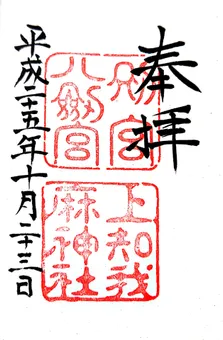 奉拝
別宮
八剣宮
上知我
麻神社
平成二十五年十月二十三日